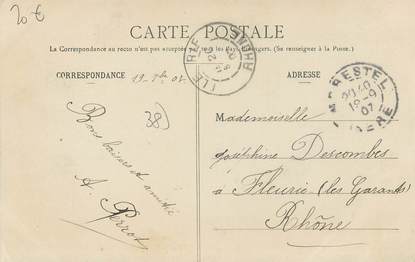 20 €
CARTE POSTALE
La Correspondance au recto n'est pas acceptée par tous les Pays étrangers. (Se renseigner à la Poste.)
CORRESPONDANCE
ADRESSE
RHÔNE
MORESTEL
18-9
07
ISÈRE
38
Bons baisers et amitié
A Perrot
Mademoiselle
Joséphine Descombes
à Fleurie (les Garants)
Rhône